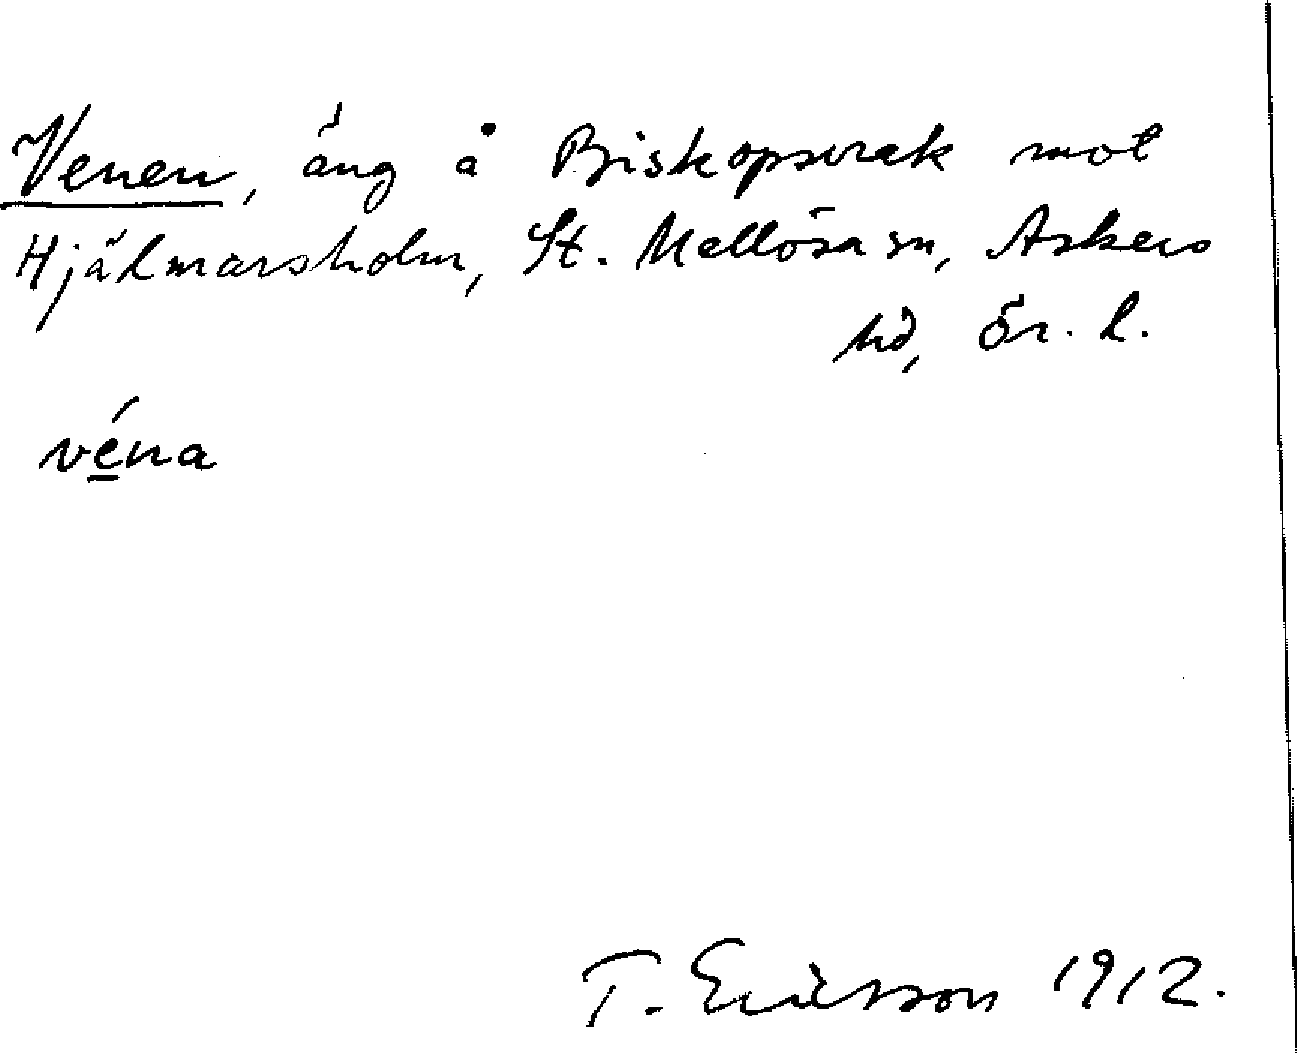 Venen, äng å Biskopsvrak mot
Hjälmarsholm, St. Mellösa sn, Askers
hd, Ör. l.
véna
T. Ericsson 1912.